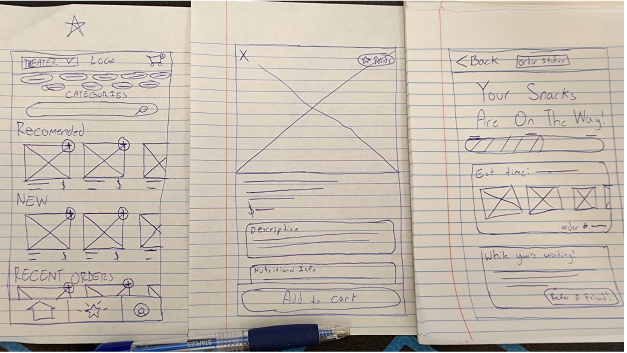 THEATER V LOGO
CATEGORIES
Recomended
$ $
NEW
$ $
RECENT ORDERS
@
X
Points
$
Description
Nutritional Info
Add to cart
< Back
Order Status
Your Snacks
Are On The Way!
Est time:
order #
While you're waiting!
Refer a friend!
STAPLES